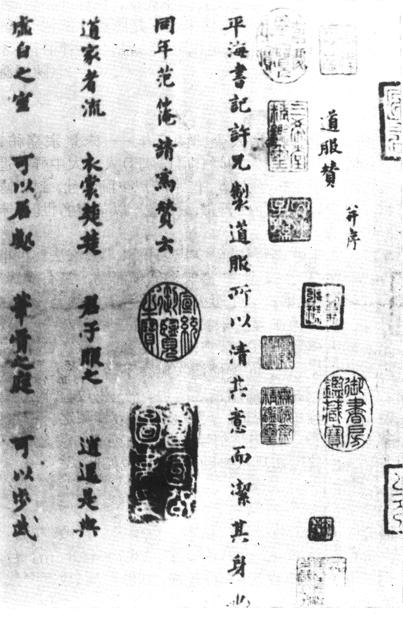 道服贊 并序
平海書記許兄製道服所以清其意而潔其身也
同年范仲淹請爲贊云
道家者流 衣裳楚楚 君子服之 逍遥是與
虛白之室 可以居處 華胥之庭 可以步武
御書房鑑藏寶
三希堂精鑑璽
宜子孫
宣統御覽之寶